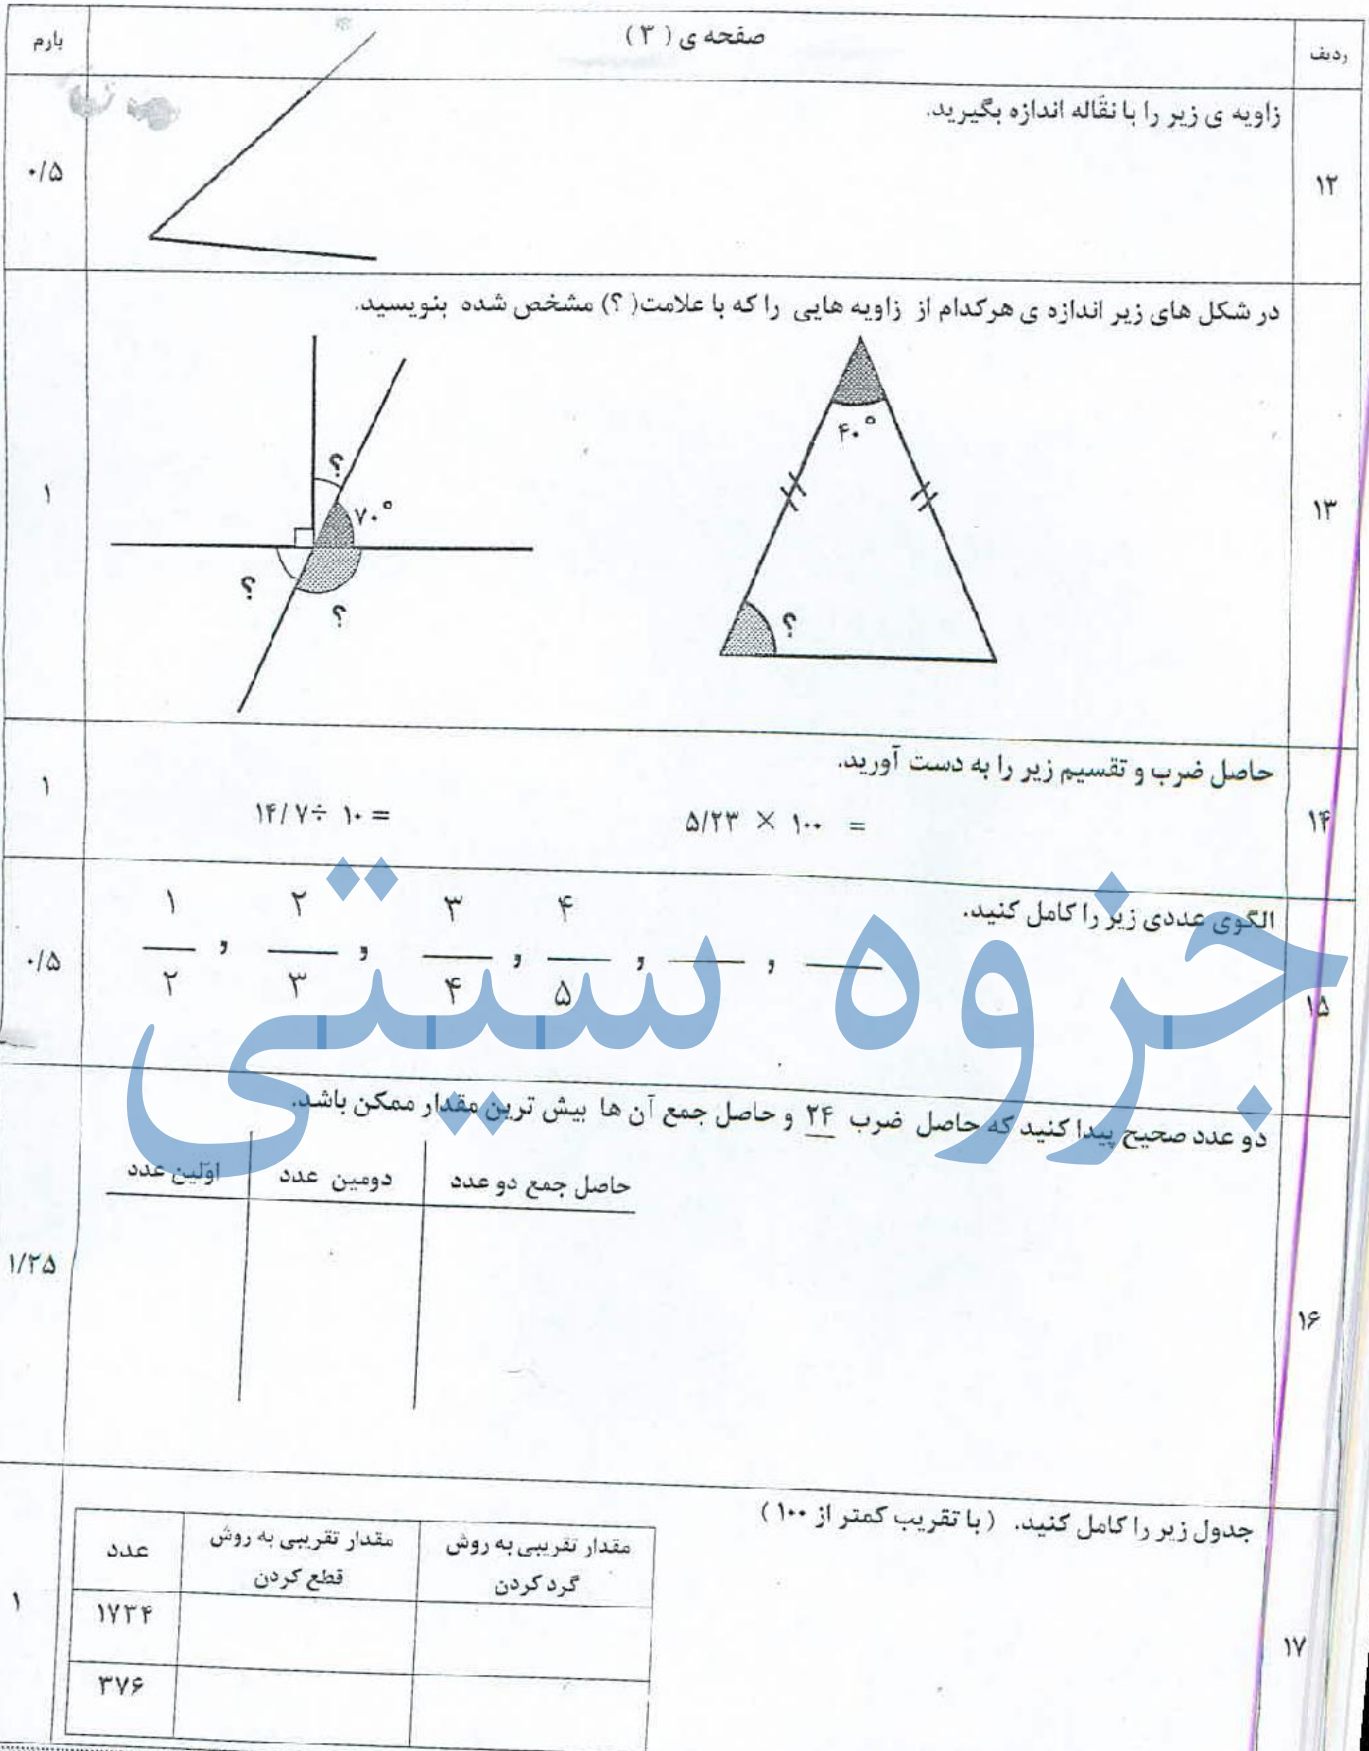 ردیف
صفحه ی ( ۳ )
بارم
۱۲
زاویه ی زیر را با نقّاله اندازه بگیرید.
۰/۵
۱۳
در شکل های زیر اندازه ی هرکدام از زاویه هایی را که با علامت( ؟) مشخص شده بنویسید.
۱
۴۰°
؟
؟
۷۰°
؟
؟
۱۴
حاصل ضرب و تقسیم زیر را به دست آورید.
۱
۵/۲۳ × ۱۰۰ =
۱۴/۷ ÷ ۱۰ =
۱۵
الگوی عددی زیر را کامل کنید.
۰/۵
۱ ۲ ۳ ۴
— , — , — , — , — , —
۲ ۳ ۴ ۵
جزوه سیتی
۱۶
دو عدد صحیح پیدا کنید که حاصل ضرب ۲۴ و حاصل جمع آن ها بیش ترین مقدار ممکن باشد.
۱/۲۵
اوّلین عدد
دومین عدد
حاصل جمع دو عدد
۱۷
جدول زیر را کامل کنید. ( با تقریب کمتر از ۱۰۰ )
۱
عدد
مقدار تقریبی به روش
قطع کردن
مقدار تقریبی به روش
گرد کردن
۱۷۳۴
۳۷۶